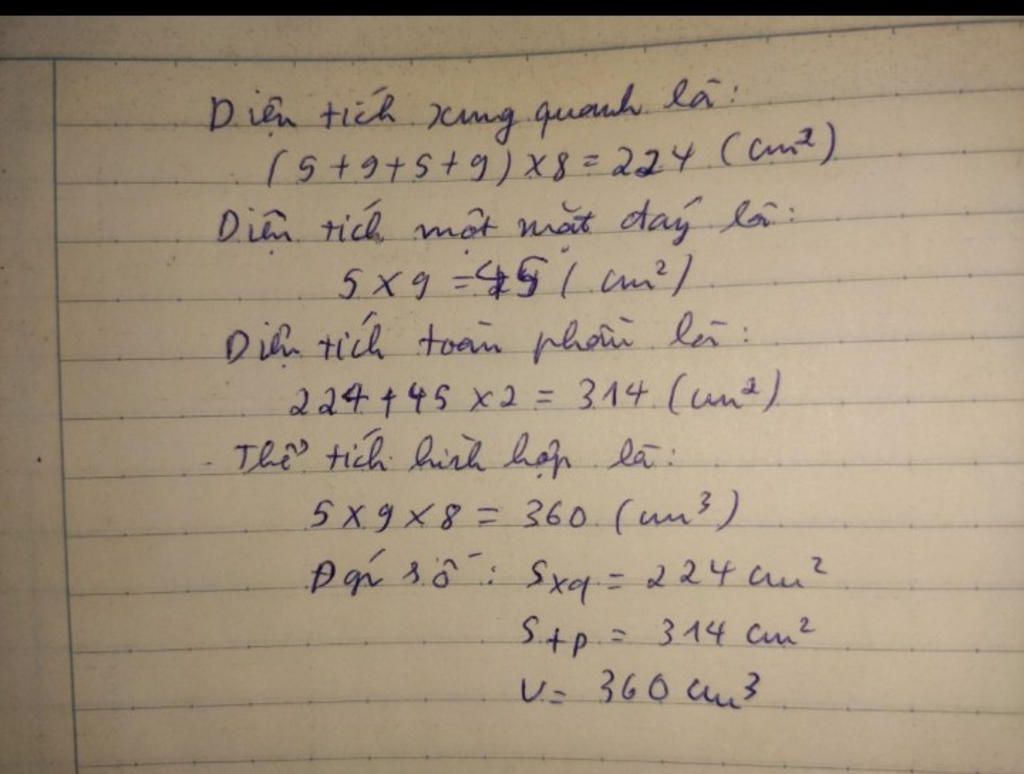 Diện tích xung quanh là:
(5+9+5+9)×8=224 (cm²)
Diện tích một mặt đáy là:
5×9=45 (cm²)
Diện tích toàn phần là:
224+45×2=314 (cm²)
- Thể tích hình hộp là:
5×9×8=360 (cm³)
Đáp số: Sxq=224cm²
Stp=314cm²
V=360cm³